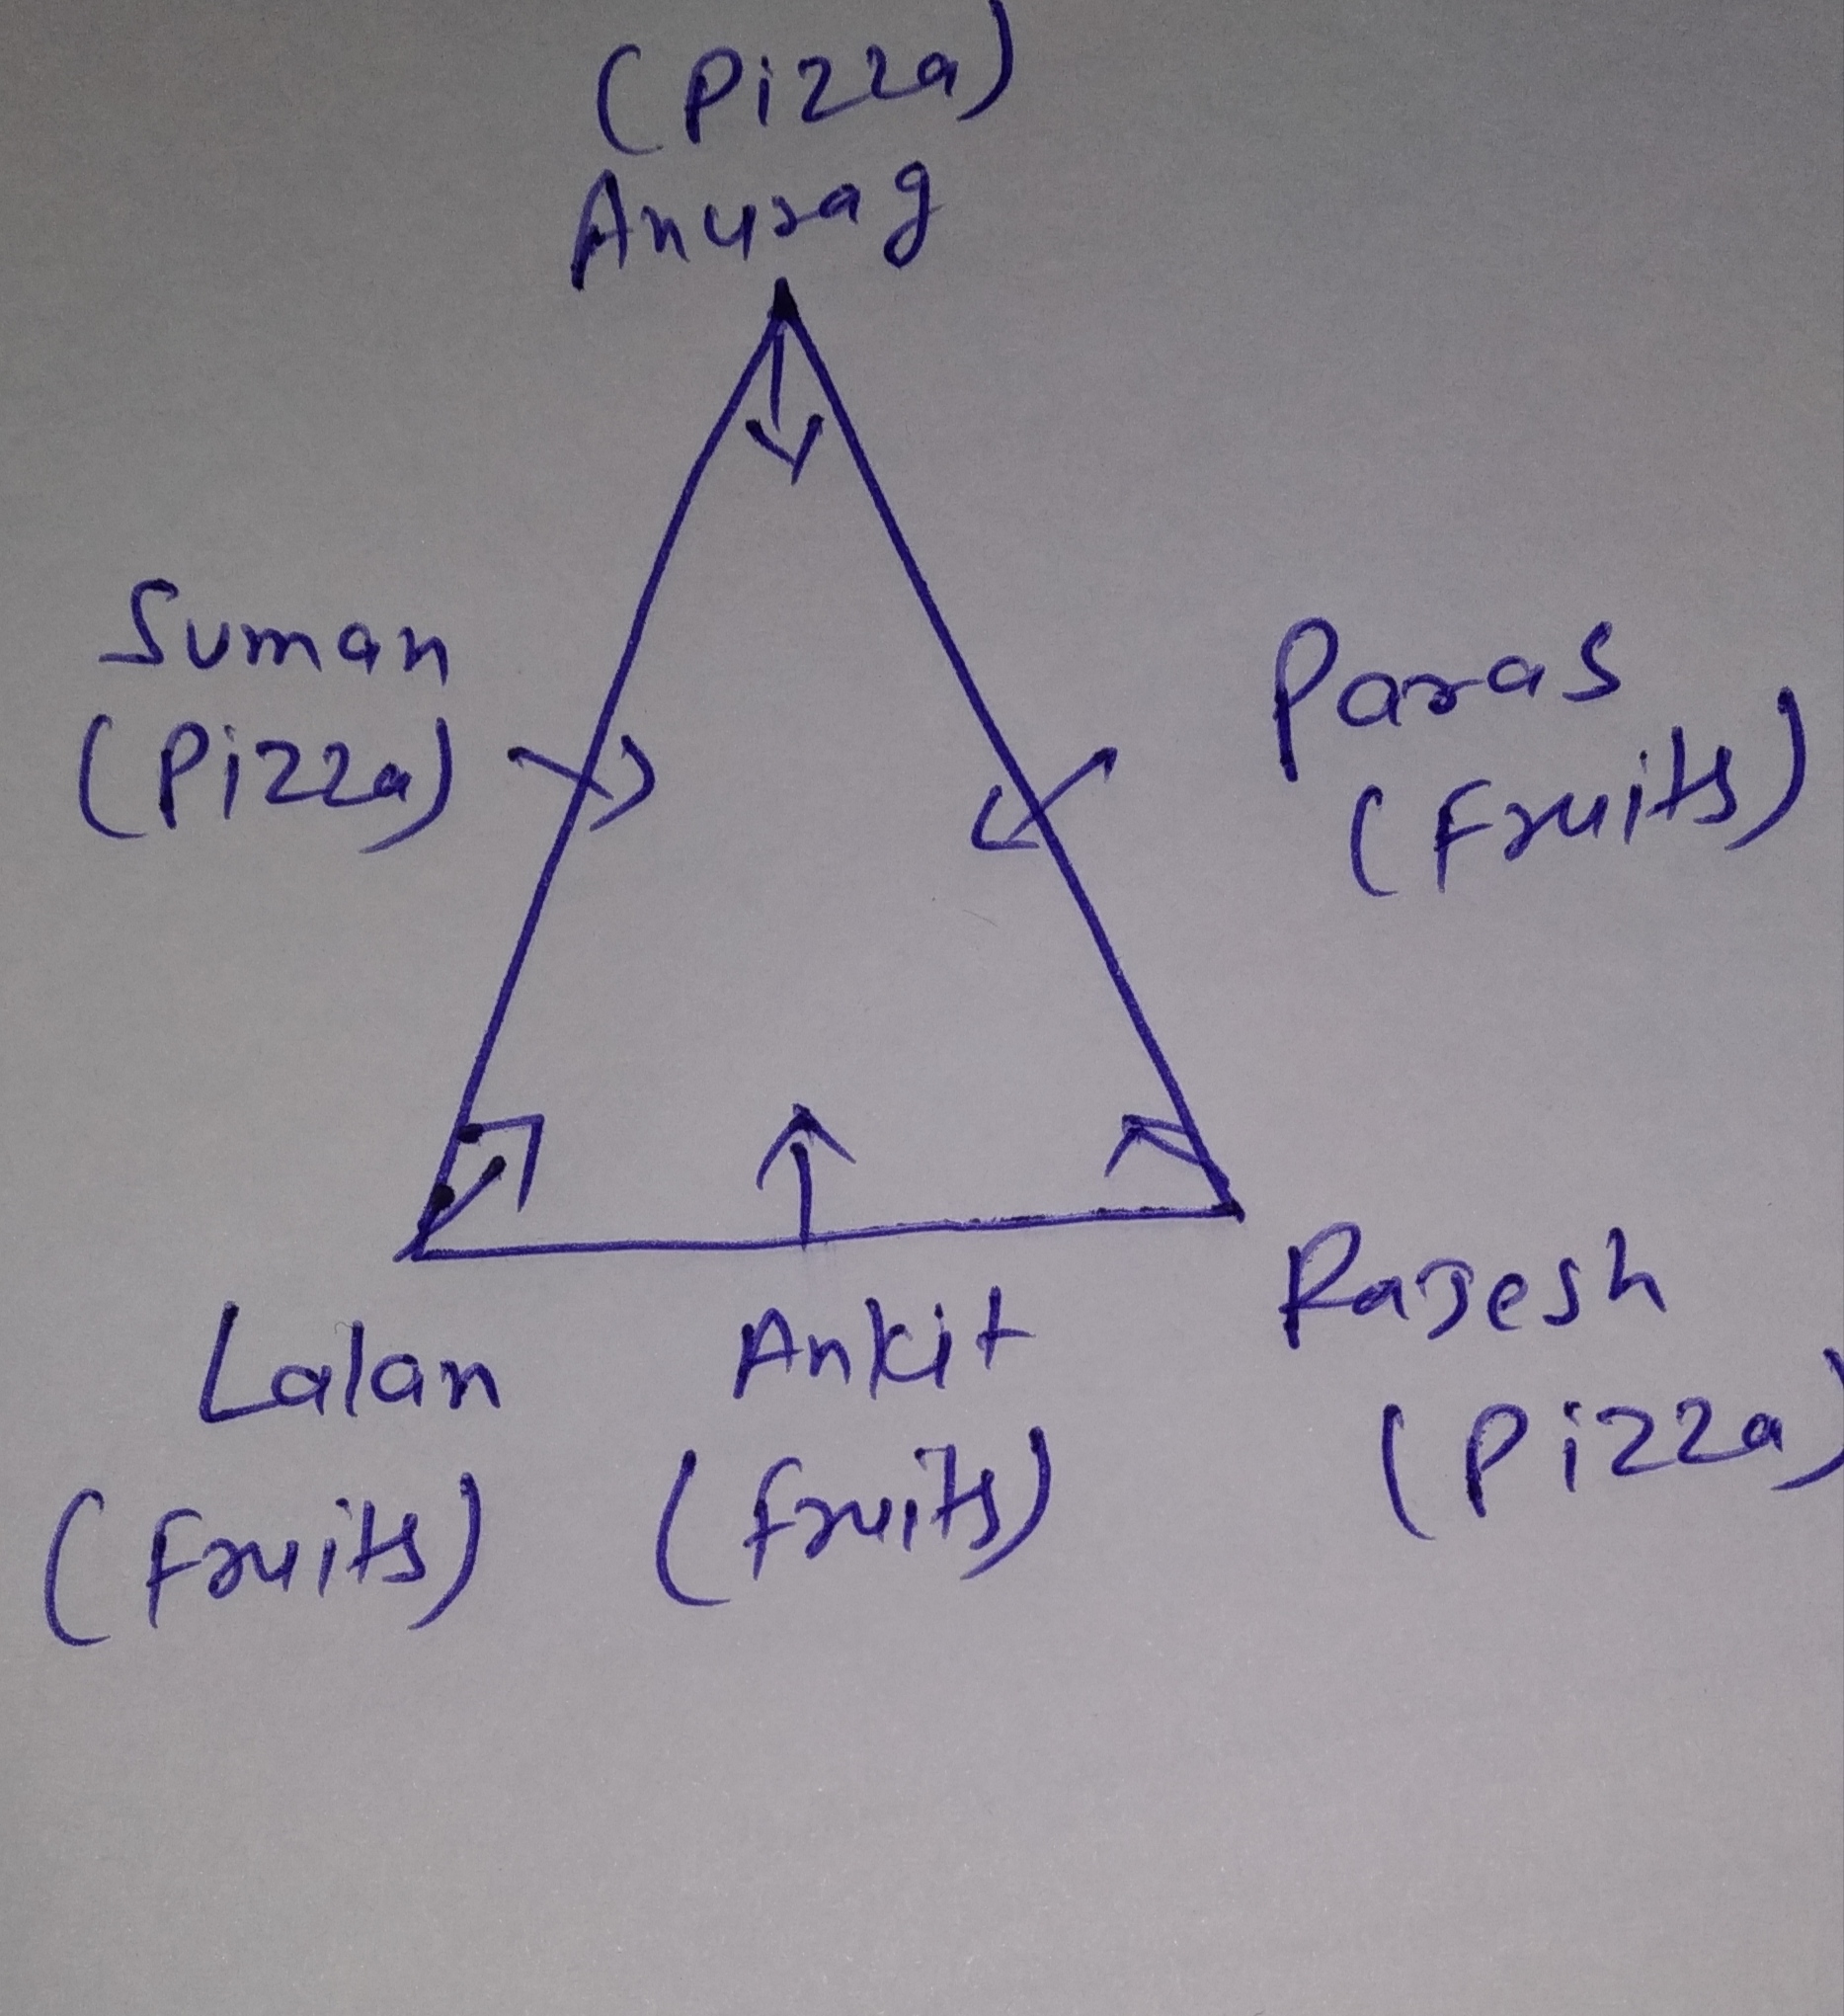 (Pizza)
Anurag
Suman
(Pizza)
Paras
(Fruits)
Lalan
(Fruits)
Ankit
(Fruits)
Rajesh
(Pizza)